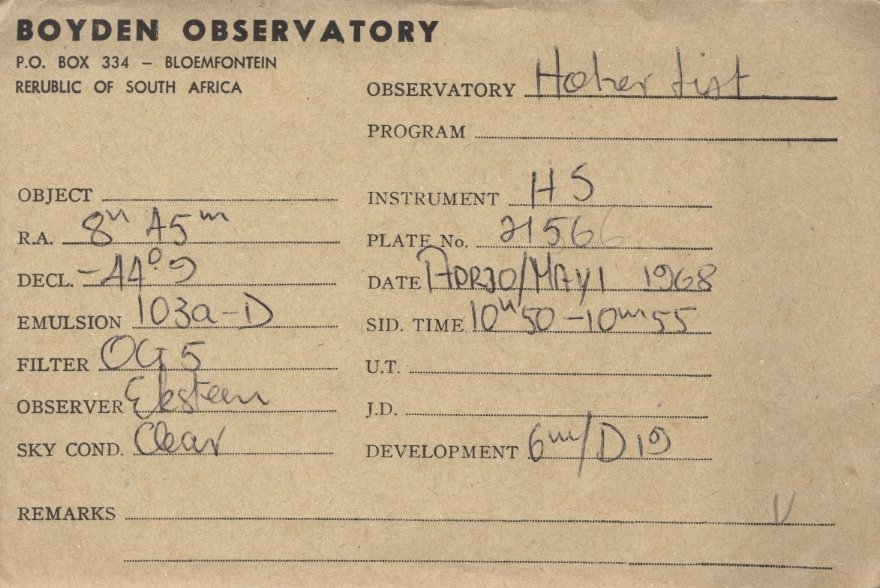 BOYDEN OBSERVATORY
P.O. BOX 334 – BLOEMFONTEIN
RERUBLIC OF SOUTH AFRICA
OBSERVATORY Hoher List
PROGRAM
OBJECT
R.A. 8h 45m
DECL. -44°.9
EMULSION 103a-D
FILTER OG 5
OBSERVER Eksteen
SKY COND. Clear
INSTRUMENT HS
PLATE No. 21566
DATE APR30/MAY1 1968
SID. TIME 10h50-10m55
U.T.
J.D.
DEVELOPMENT 6m/D19
REMARKS V